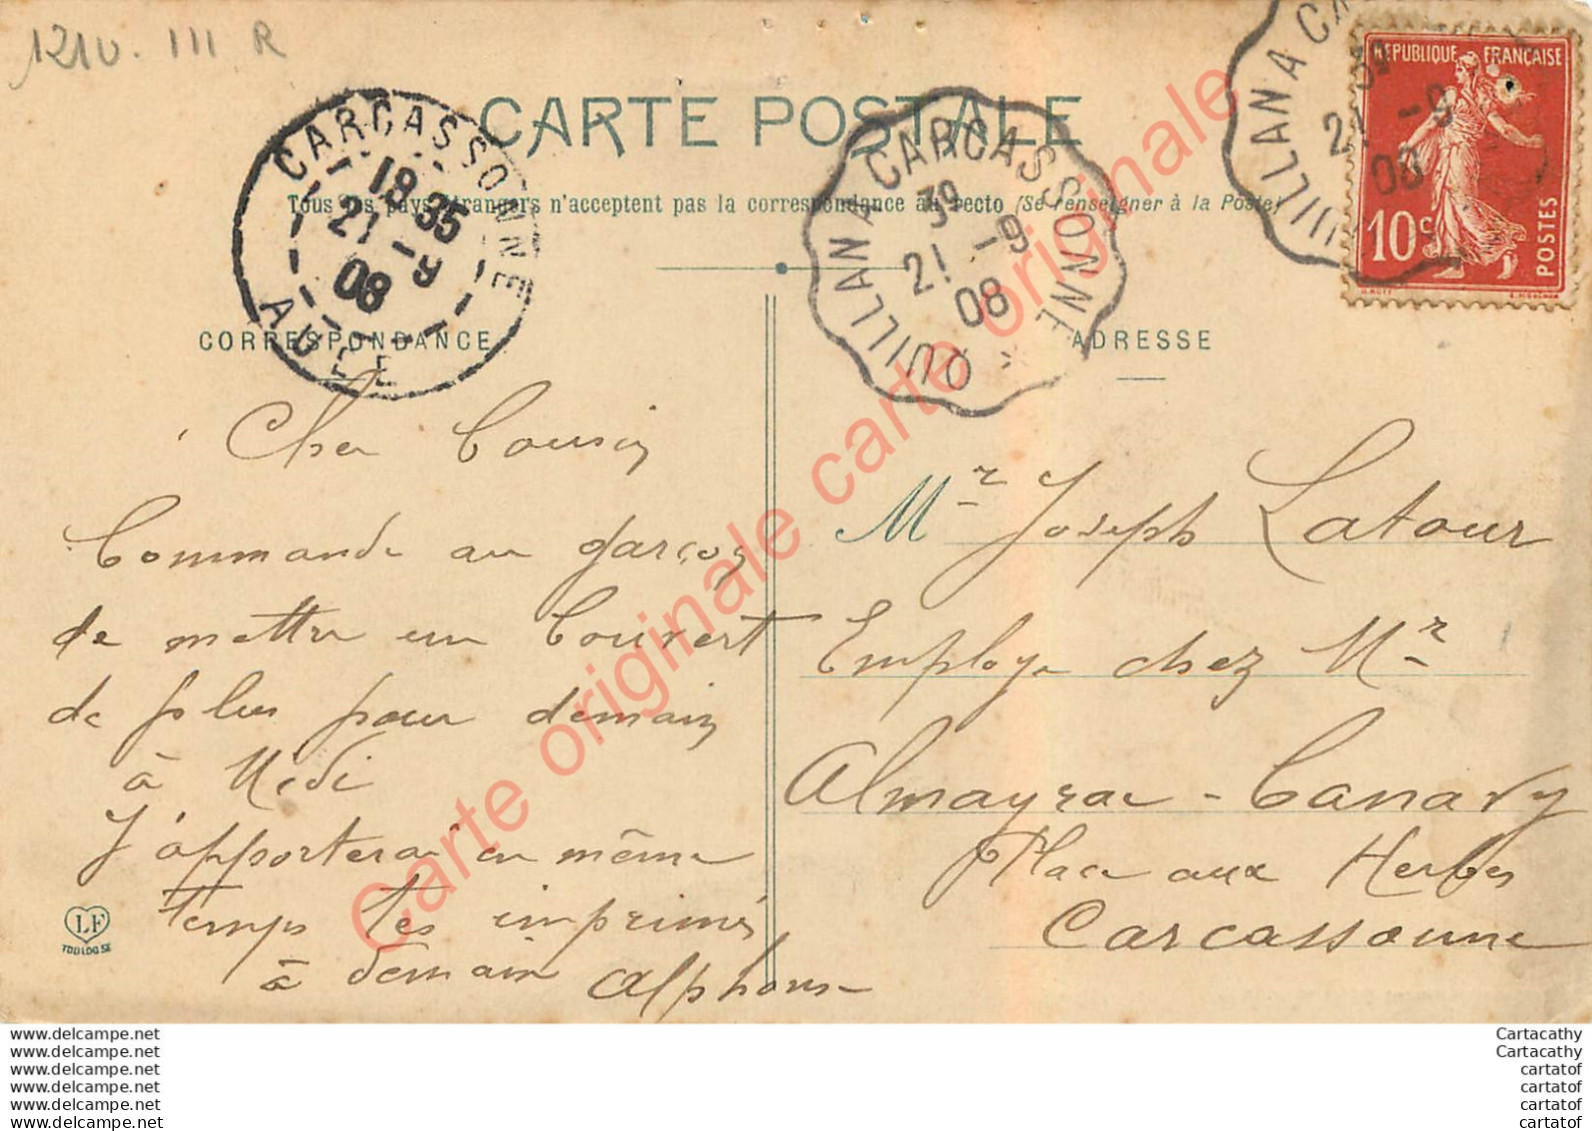 1210. III R
CARTE POSTALE
Tous les pays étrangers n'acceptent pas la correspondance au recto (Se renseigner à la Poste)
CARCASSONNE
18 35
21 -9
08
AUDE
QUILLAN A CARCASSONNE
39
21 -9
08
QUILLAN A CA
39
21 -9
08
REPUBLIQUE FRANÇAISE
10c
POSTES
CORRESPONDANCE
Cher Cousin
Commande au garçon
de mettre un Couvert
de plus pour demain
à Midi
J'apporterai en même
temps tes imprimés
à demain Alphonse
LF
TOULOUSE
ADRESSE
Mr Joseph Latour
Employe chez Mr
Almayrac - Canavy
Place aux Herbes
Carcassonne
Carte originale carte originale carte originale
www.delcampe.net
www.delcampe.net
www.delcampe.net
www.delcampe.net
www.delcampe.net
www.delcampe.net
Cartacathy
Cartacathy
cartatof
cartatof
cartatof
cartatof